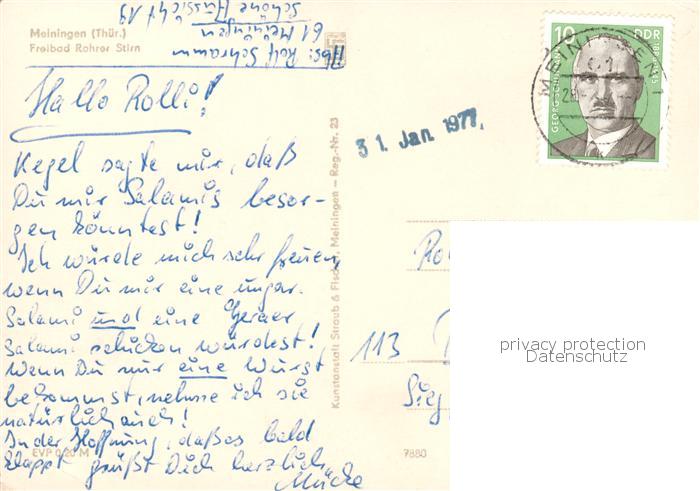 Meiningen (Thür.)
Freibad Rohrer Stirn
Abs: Rolf Schramm
61 Meiningen
Schöne Aussicht 19
Hallo Rolli!
Kegel sagte mir, daß
Du mir Salamis besor-
gen könntest!
Ich würde mich sehr freuen,
wenn Du mir eine ungar.
Salami und eine Geraer
Salami schicken würdest!
Wenn Du nur eine Wurst
bekommst, nehme ich sie
natürlich auch!
In der Hoffnung, daß es bald
klappt grüßt Dich herzlich
Mücke
EVP 0,20 M
Kunstanstalt Straub & Fischer Meiningen — Reg.-Nr. 23
31. Jan. 1977
MEININGEN 1
10 DDR
GEORG SCHUMANN
113
Sieg
7880
privacy protection
Datenschutz